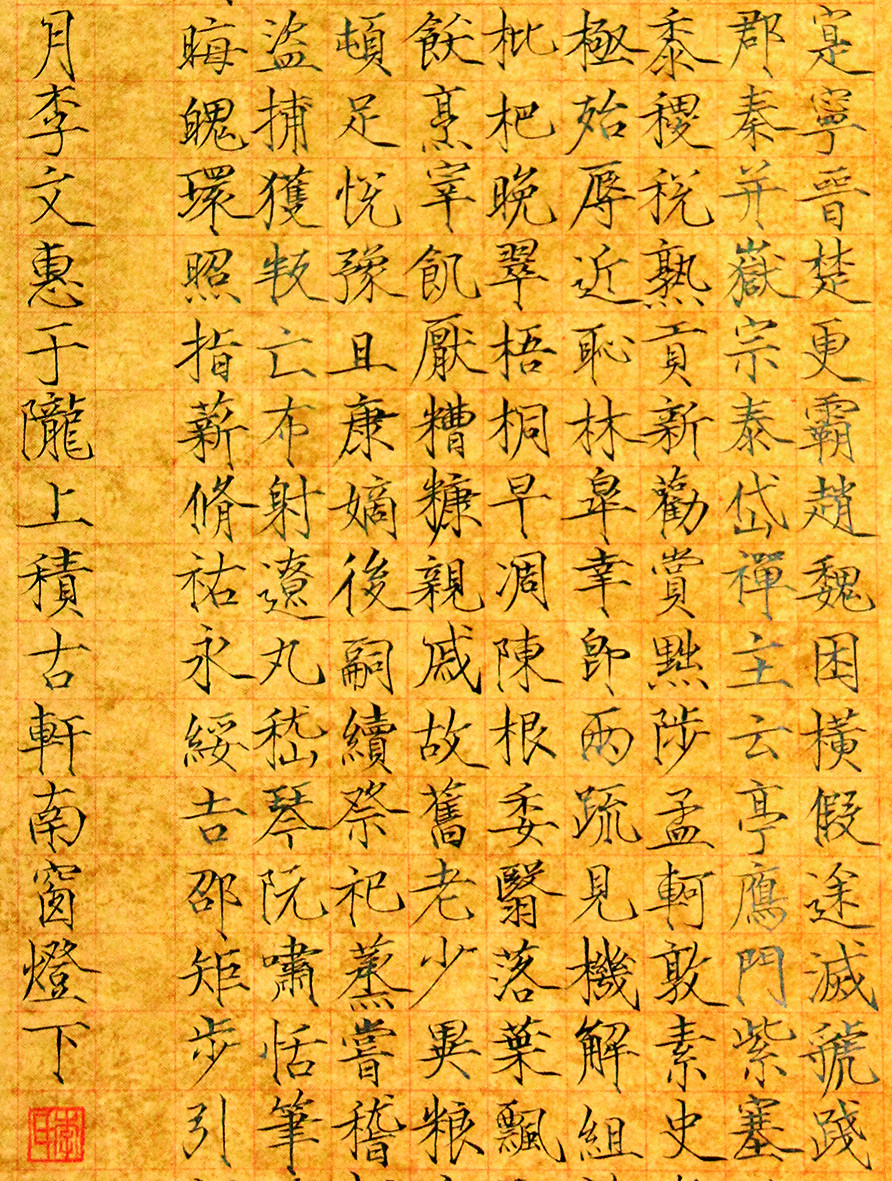 寔寧晉楚更霸趙魏困橫假途滅虢踐
郡秦并嶽宗泰岱禪主云亭鴈門紫塞
黍稷稅熟貢新勸賞黜陟孟軻敦素史
極殆辱近恥林皐幸即兩疏見機解組
枇杷晚翠梧桐早凋陳根委翳落葉飄
飫烹宰飢厭糟糠親戚故舊老少異糧
頓足悅豫且康嫡後嗣續祭祀蒸嘗稽
盜捕獲叛亡布射遼丸嵇琴阮嘯恬筆
晦魄環照指薪脩祐永綏吉邵矩步引
月李文惠于隴上積古軒南窗燈下